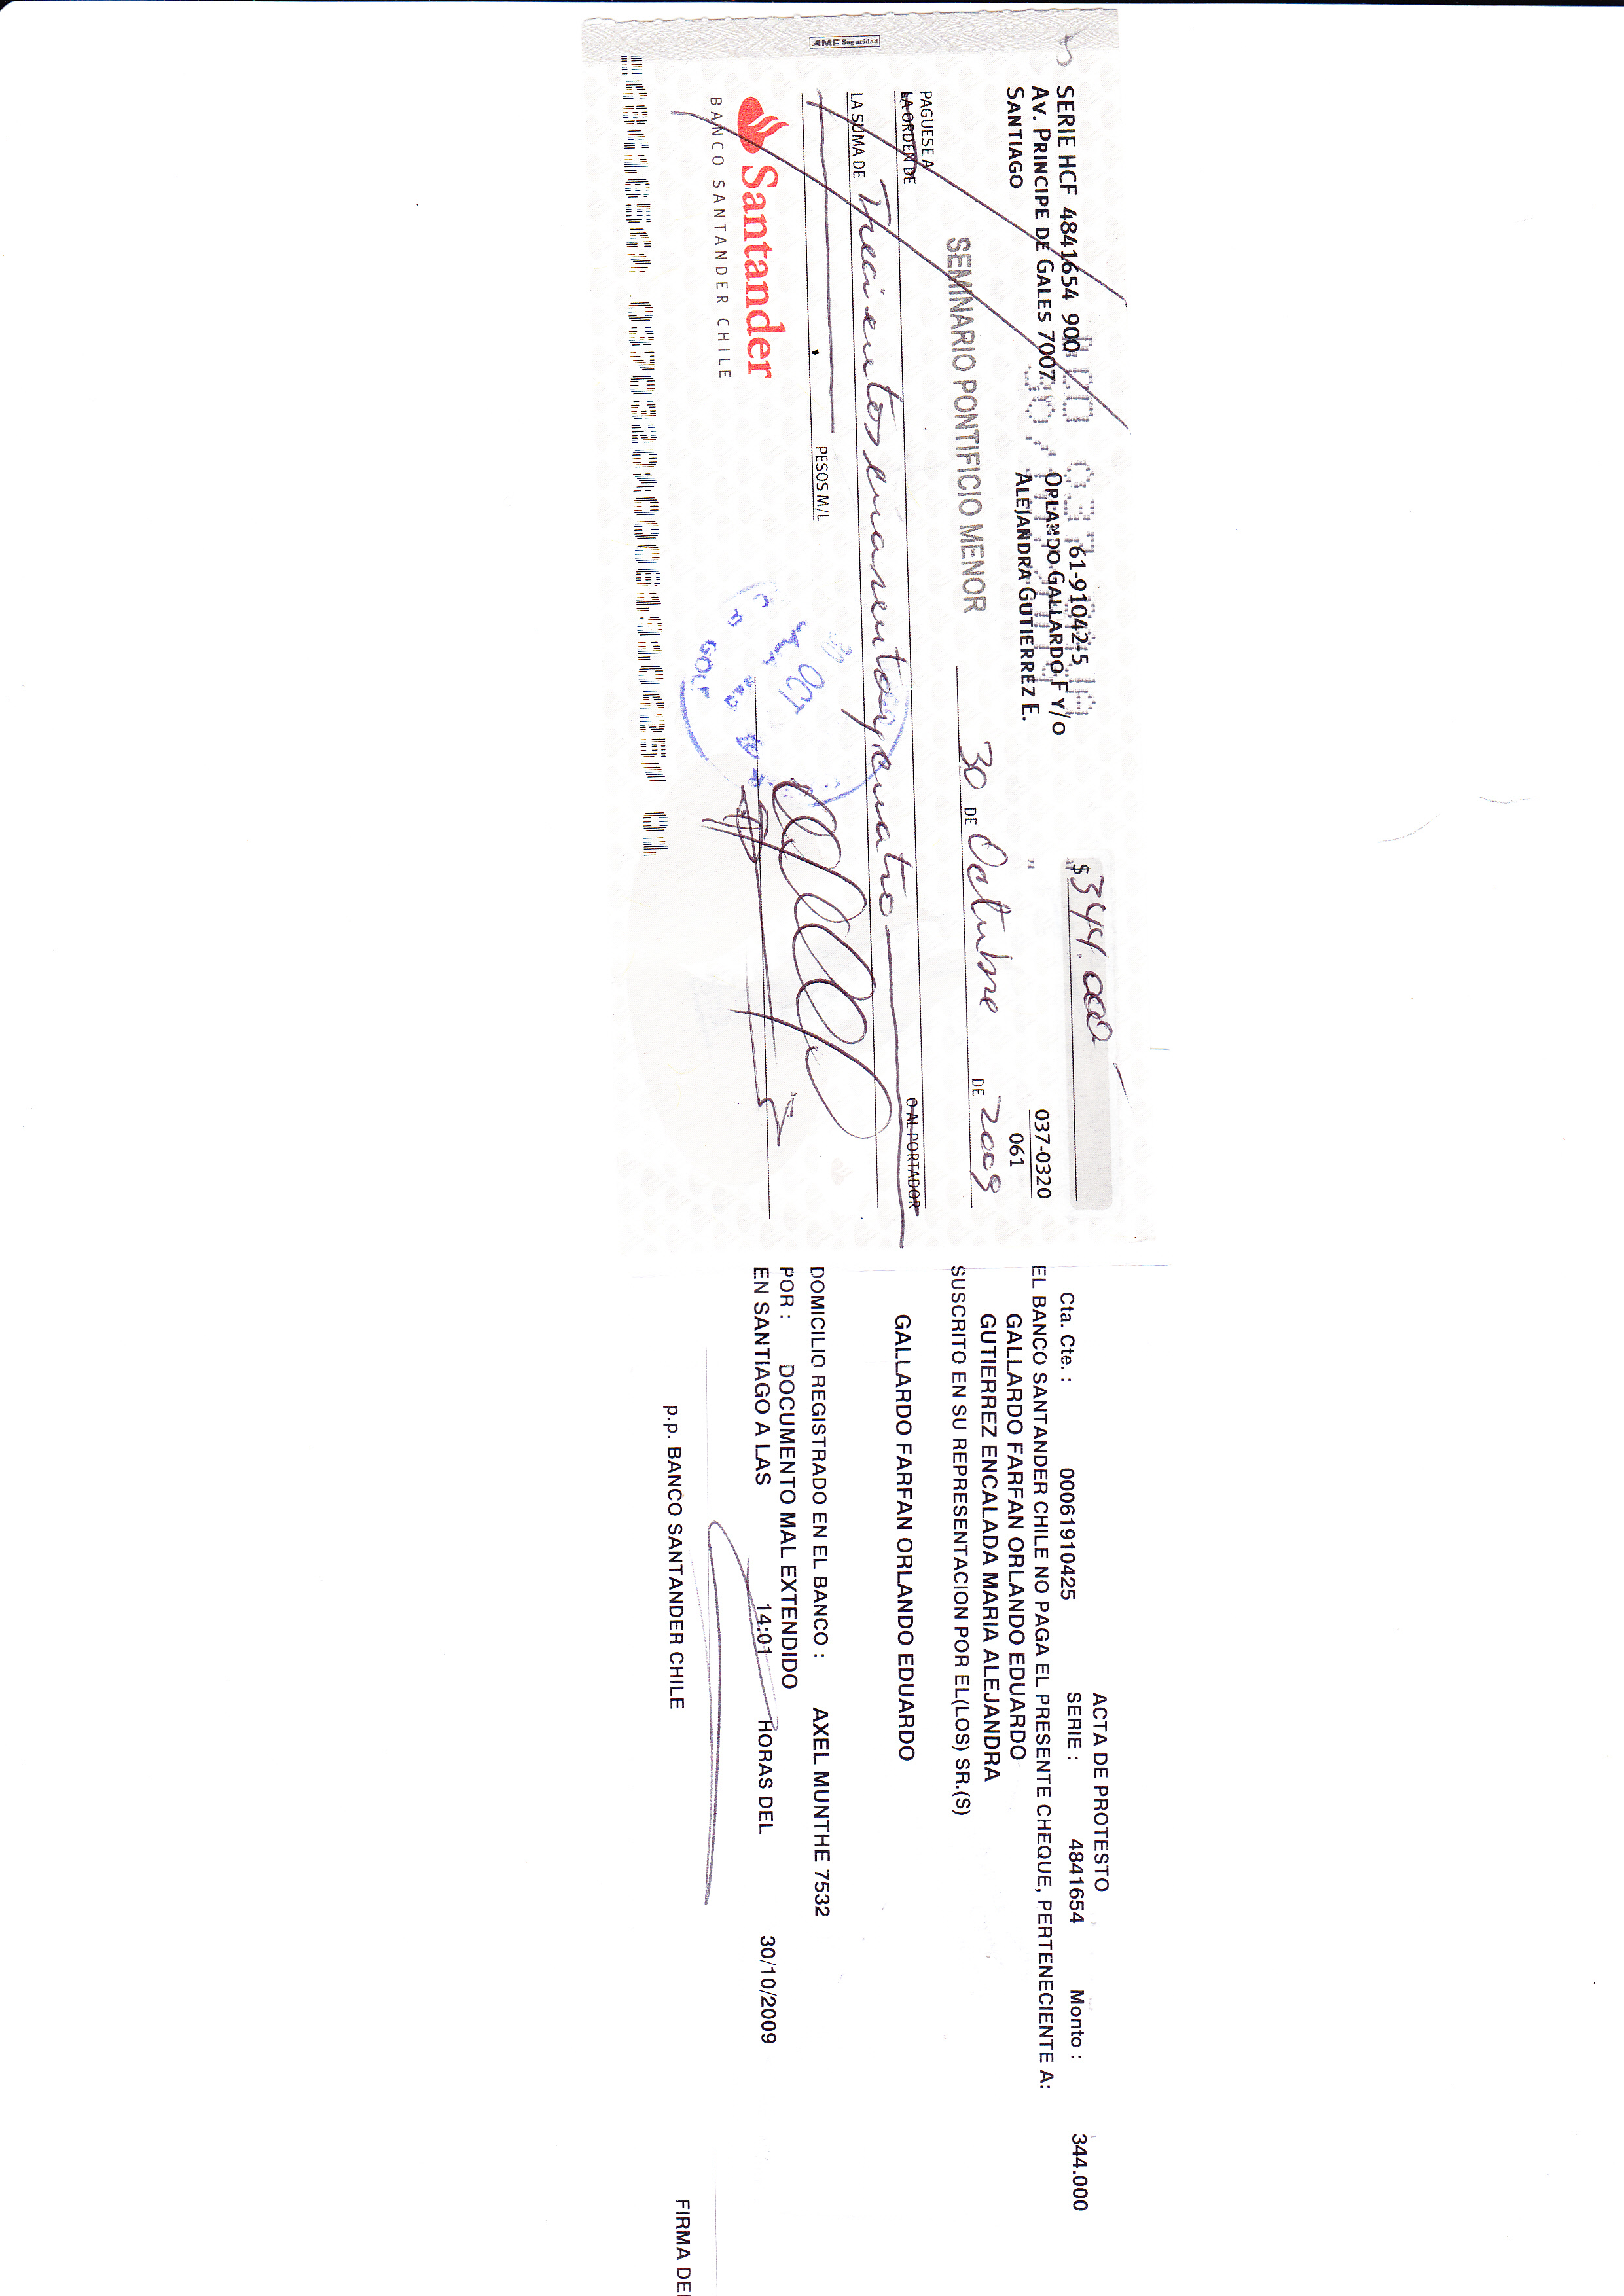 AMF Seguridad
SERIE HCF 4841654 900
AV. PRINCIPE DE GALES 7007
SANTIAGO
61-91042-5
ORLANDO GALLARDO F Y/O
ALEJANDRA GUTIERREZ E.
$ 344.000
037-0320
061
30 DE Octubre DE 2009
SEMINARIO PONTIFICIO MENOR
PAGUESE A
LA ORDEN DE
O AL PORTADOR
LA SUMA DE Trecientos cuarenta y cuatro
PESOS M/L
Santander
BANCO SANTANDER CHILE
OCT
GOLF
ACTA DE PROTESTO
Cta. Cte. : 00061910425 SERIE : 4841654 Monto : 344.000
EL BANCO SANTANDER CHILE NO PAGA EL PRESENTE CHEQUE, PERTENECIENTE A:
GALLARDO FARFAN ORLANDO EDUARDO
GUTIERREZ ENCALADA MARIA ALEJANDRA
SUSCRITO EN SU REPRESENTACION POR EL(LOS) SR.(S)
GALLARDO FARFAN ORLANDO EDUARDO
DOMICILIO REGISTRADO EN EL BANCO : AXEL MUNTHE 7532
POR : DOCUMENTO MAL EXTENDIDO
EN SANTIAGO A LAS 14:01 HORAS DEL 30/10/2009
p.p. BANCO SANTANDER CHILE
FIRMA DE